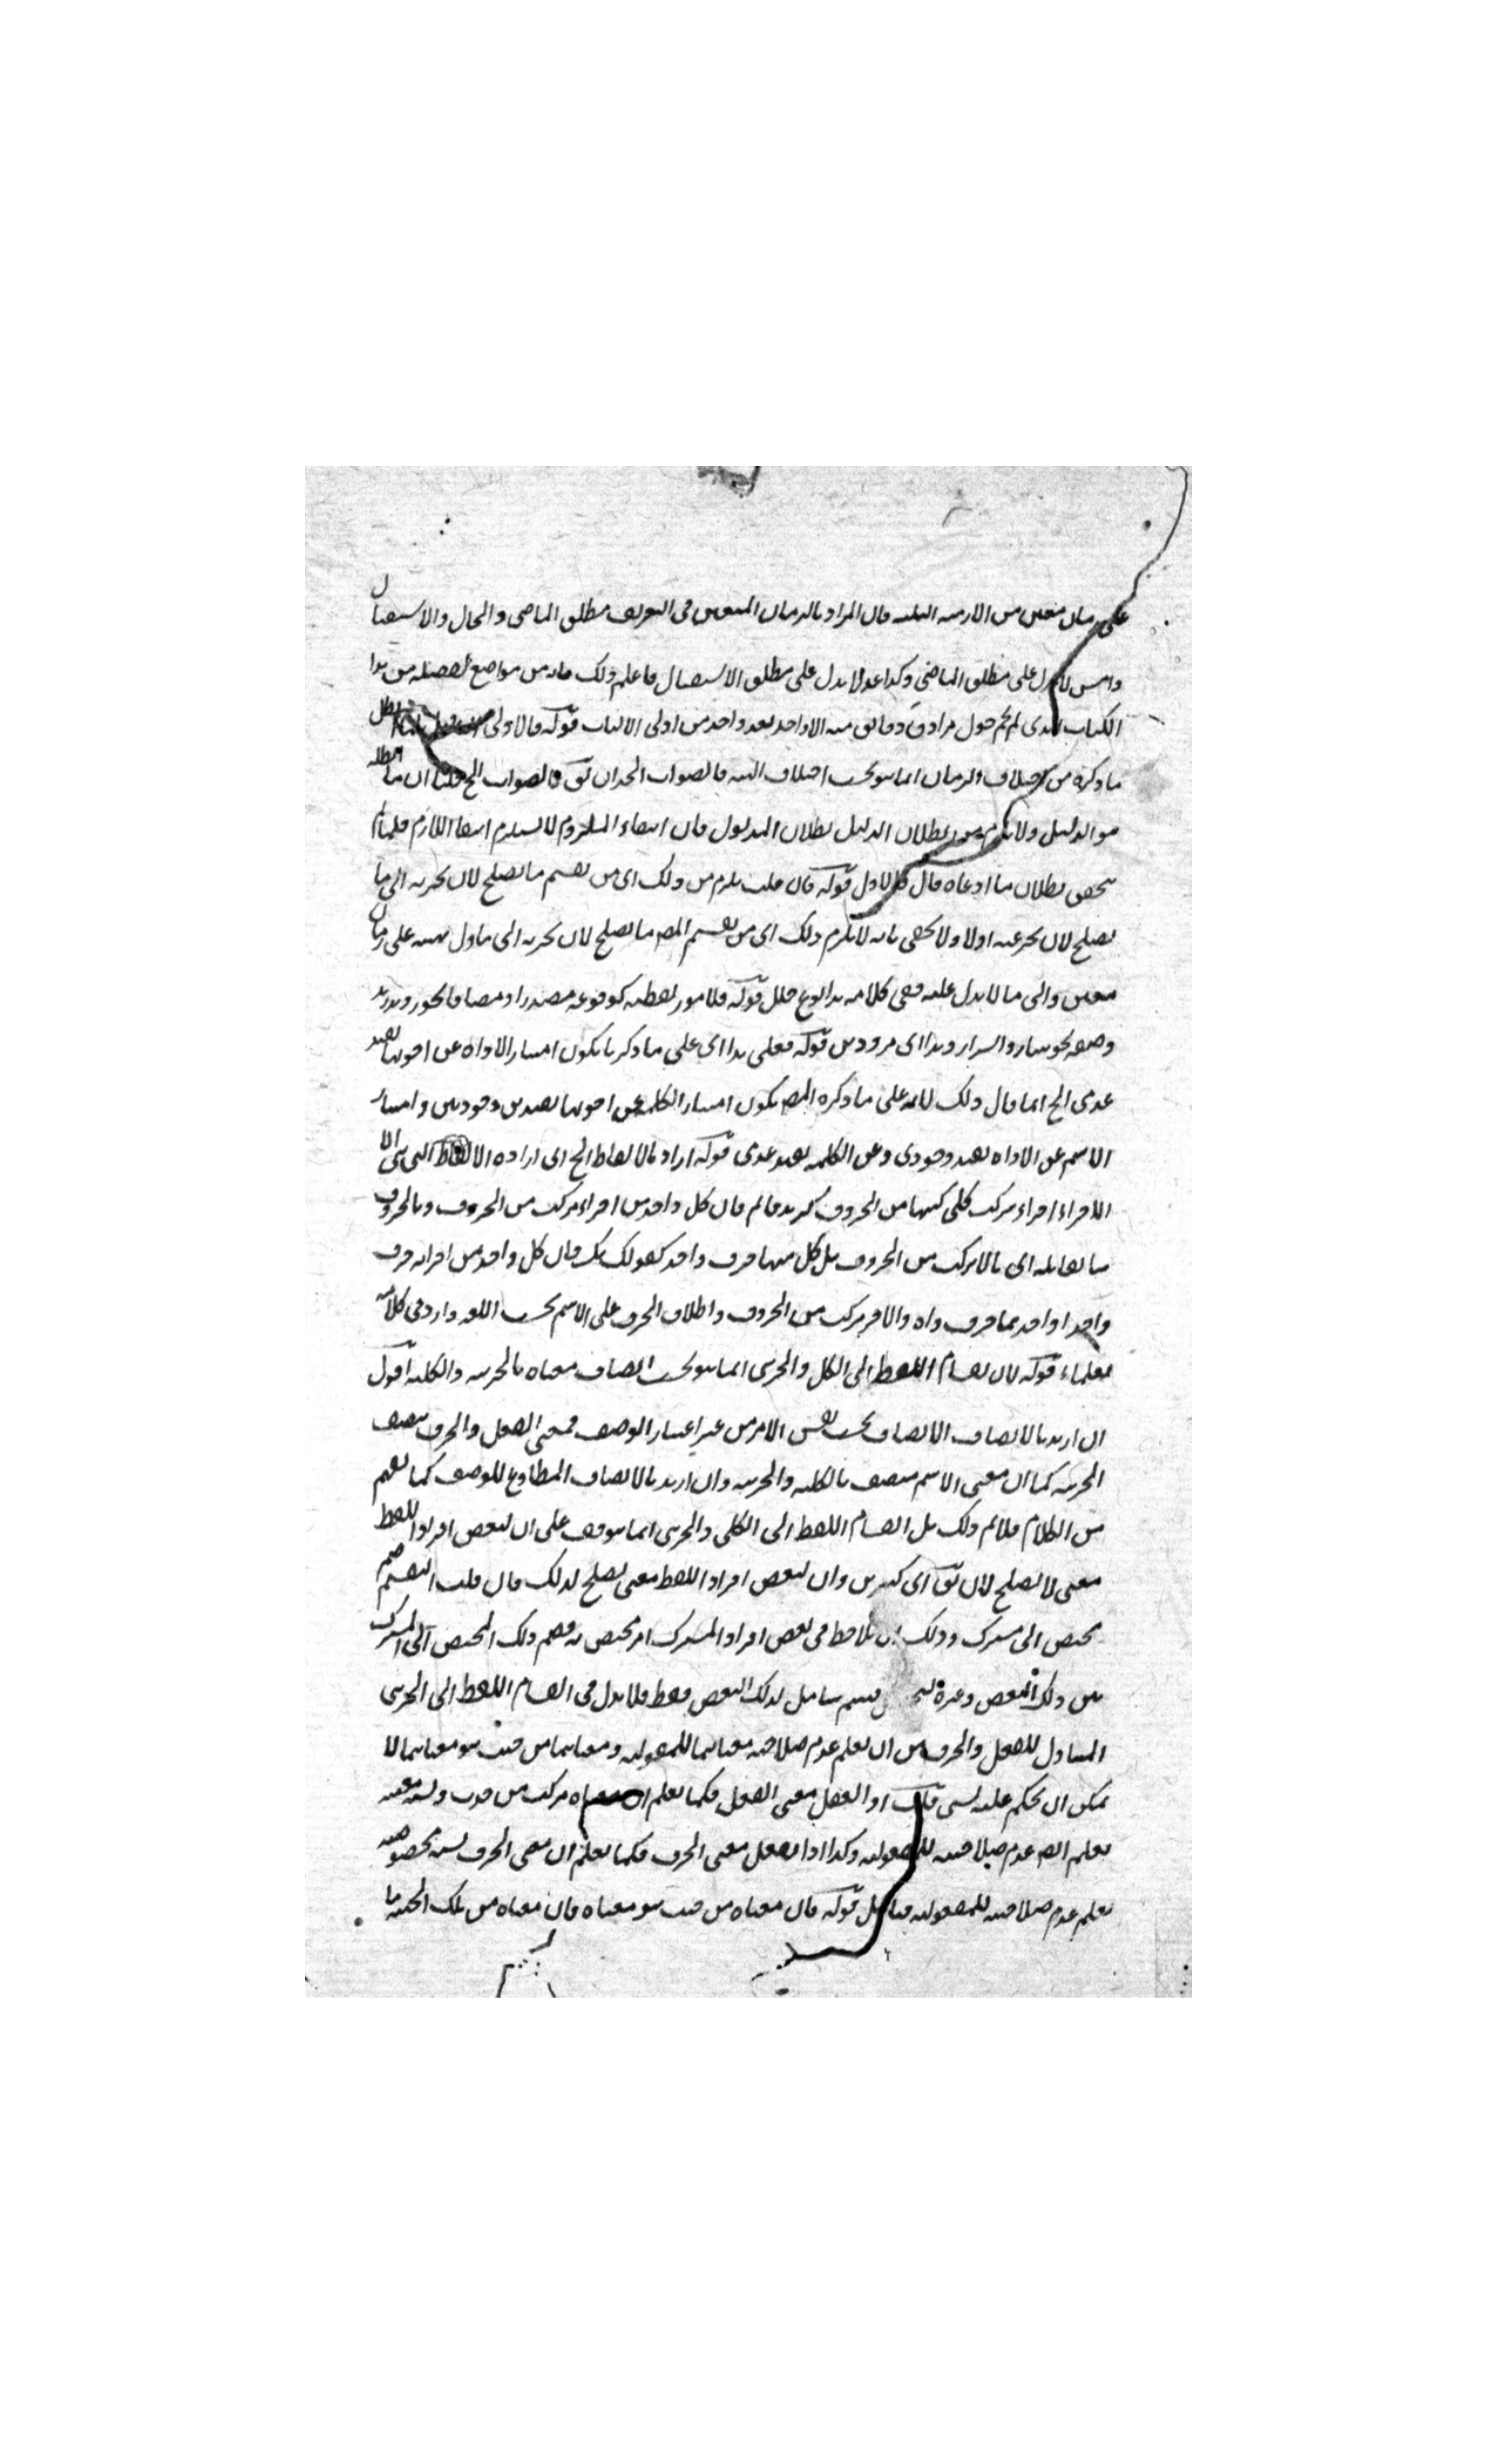 على زمان معين من الازمنة الثلثة فان المراد بالزمان المعين في التعريف مطلق الماضي والحال والاستقبال
وامس لا يدل على مطلق الماضي وكذا غد لا يدل على مطلق الاستقبال فاعلم ذلك فانه من مواضع تفصيله من هذا
الكتاب الذي لم يحم حول مرادق دقائق منه الا واحد بعد واحد من اولى الالباب قوله فالاولى
ما ذكره من اختلاف الزمان انما هو بحسب اختلاف الهيئة فالصواب الحد ان يق فالصواب الخ قلنا ان ما ابطله
هو الدليل ولا يلزم من بطلان الدليل بطلان المدلول فان انتفاء الملزوم لا يستلزم انتفا اللازم فلما لم
يتحقق بطلان ما ادعاه قال فالاول قوله فان قلت يلزم من ذلك اى من تقسيم ما يصلح لان يخبر به الى ما
يصلح لان يخبر عنه اولا ولا يخفى بانه لا يلزم ذلك اى من تقسيم المص ما يصلح لان يخبر به الى ما دل بهيئته على زمان
معين والى ما لا يدل عليه ففي كلامه هذا نوع خلل قوله فلامور لفظية كوقوعه مصدرا ومضافا نحو
وصفه نحو وهذا اى قوله فعلى هذا اى على ما ذكر يكون امتياز الاداة عن اخويها بقيد
عدمى الخ انما قال ذلك لانه على ما ذكره المص يكون امتياز الكلمة عن اخويها بقيدين وجوديين وامتياز
الاسم عن الاداة بقيد وجودى وعن الكلمة بقيد عدمى قوله اراد بالالفاظ الخ اى اراده الالفاظ التى هى الا
الافراء افراء مركب كلى كبها من الحروف كزيد قائم فان كل واحد من افراء مركب من الحروف وبالحروف
ما يقابله اى ما لا يركب من الحروف بل كل منها حرف واحد كقولك بك فان كل واحد من افراده حرف
واحد او احدهما حرف واه والاخر مركب من الحروف واطلاق الحرف على الاسم بحسب اللغة وارد في كلامه
فعلماء قوله لان انقسام اللفظ الى الكل والجزئى انما هو بحسب اتصاف معناه بالجزئية والكلية اقول
ان اريد بالاتصاف الاتصاف بحسب نفس الامر من غير اعتبار الوصف فمعنى الفعل والحرف يتصف
الجزئية كما ان معنى الاسم متصف بالكلية والجزئية وان اريد بالاتصاف المطاوع للوصف كما يفهم
من الكلام فلا ثم ذلك بل انقسام اللفظ الى الكلى والجزئى انما يتوقف على ان لبعض افراد اللفظ
معنى لا يصلح لان يق اى كثيرين وان لبعض افراد اللفظ معنى يصلح لذلك فان قلت التقسيم ضم
مختص الى مشترك وذلك ان يلاحظ في بعض افراد المشترك امر مختص به فضم ذلك المختص الى المشترك
بين ذلك البعض وغيره قسم شامل لذلك البعض فقط فلا بدل في انقسام اللفظ الى الجزئى
المتناول للفعل والحرف من ان يعلم عدم صلاحية معناهما للمقولية ومعناهما من حيث هو معناهما لا
يمكن ان يحكم عليه بشى قلت اذا الفعل معنى الفعل فكما يعلم ان معناه مركب من حدث ونسبة معينة
يعلم ايضا عدم صلاحيته للمقولية وكذا اذا تعقل معنى الحرف فكما يعلم ان معنى الحرف نسبة مخصوصة
يعلم عدم صلاحيته للمقولية فتامل قوله فان معناه من حيث هو معناه فان معناه من تلك الحيثية ما